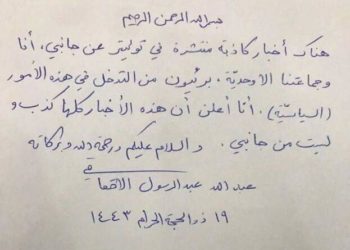 بسم الله الرحمن الرحيم
هناك أخبار كاذبة منتشرة في تويتر عن جانبي، أنا
وجماعتنا الأوحديّة. برئيون من التدخل في هذه الأمور
(السياسيّة). أنا أعلن أن هذه الأخبار كلها كذب و
ليست من جانبي. والسلام عليكم ورحمة الله وبركاته
في
عبدالله عبدالرسول
١٩ ذو الحجة الحرام ١٤٤٣